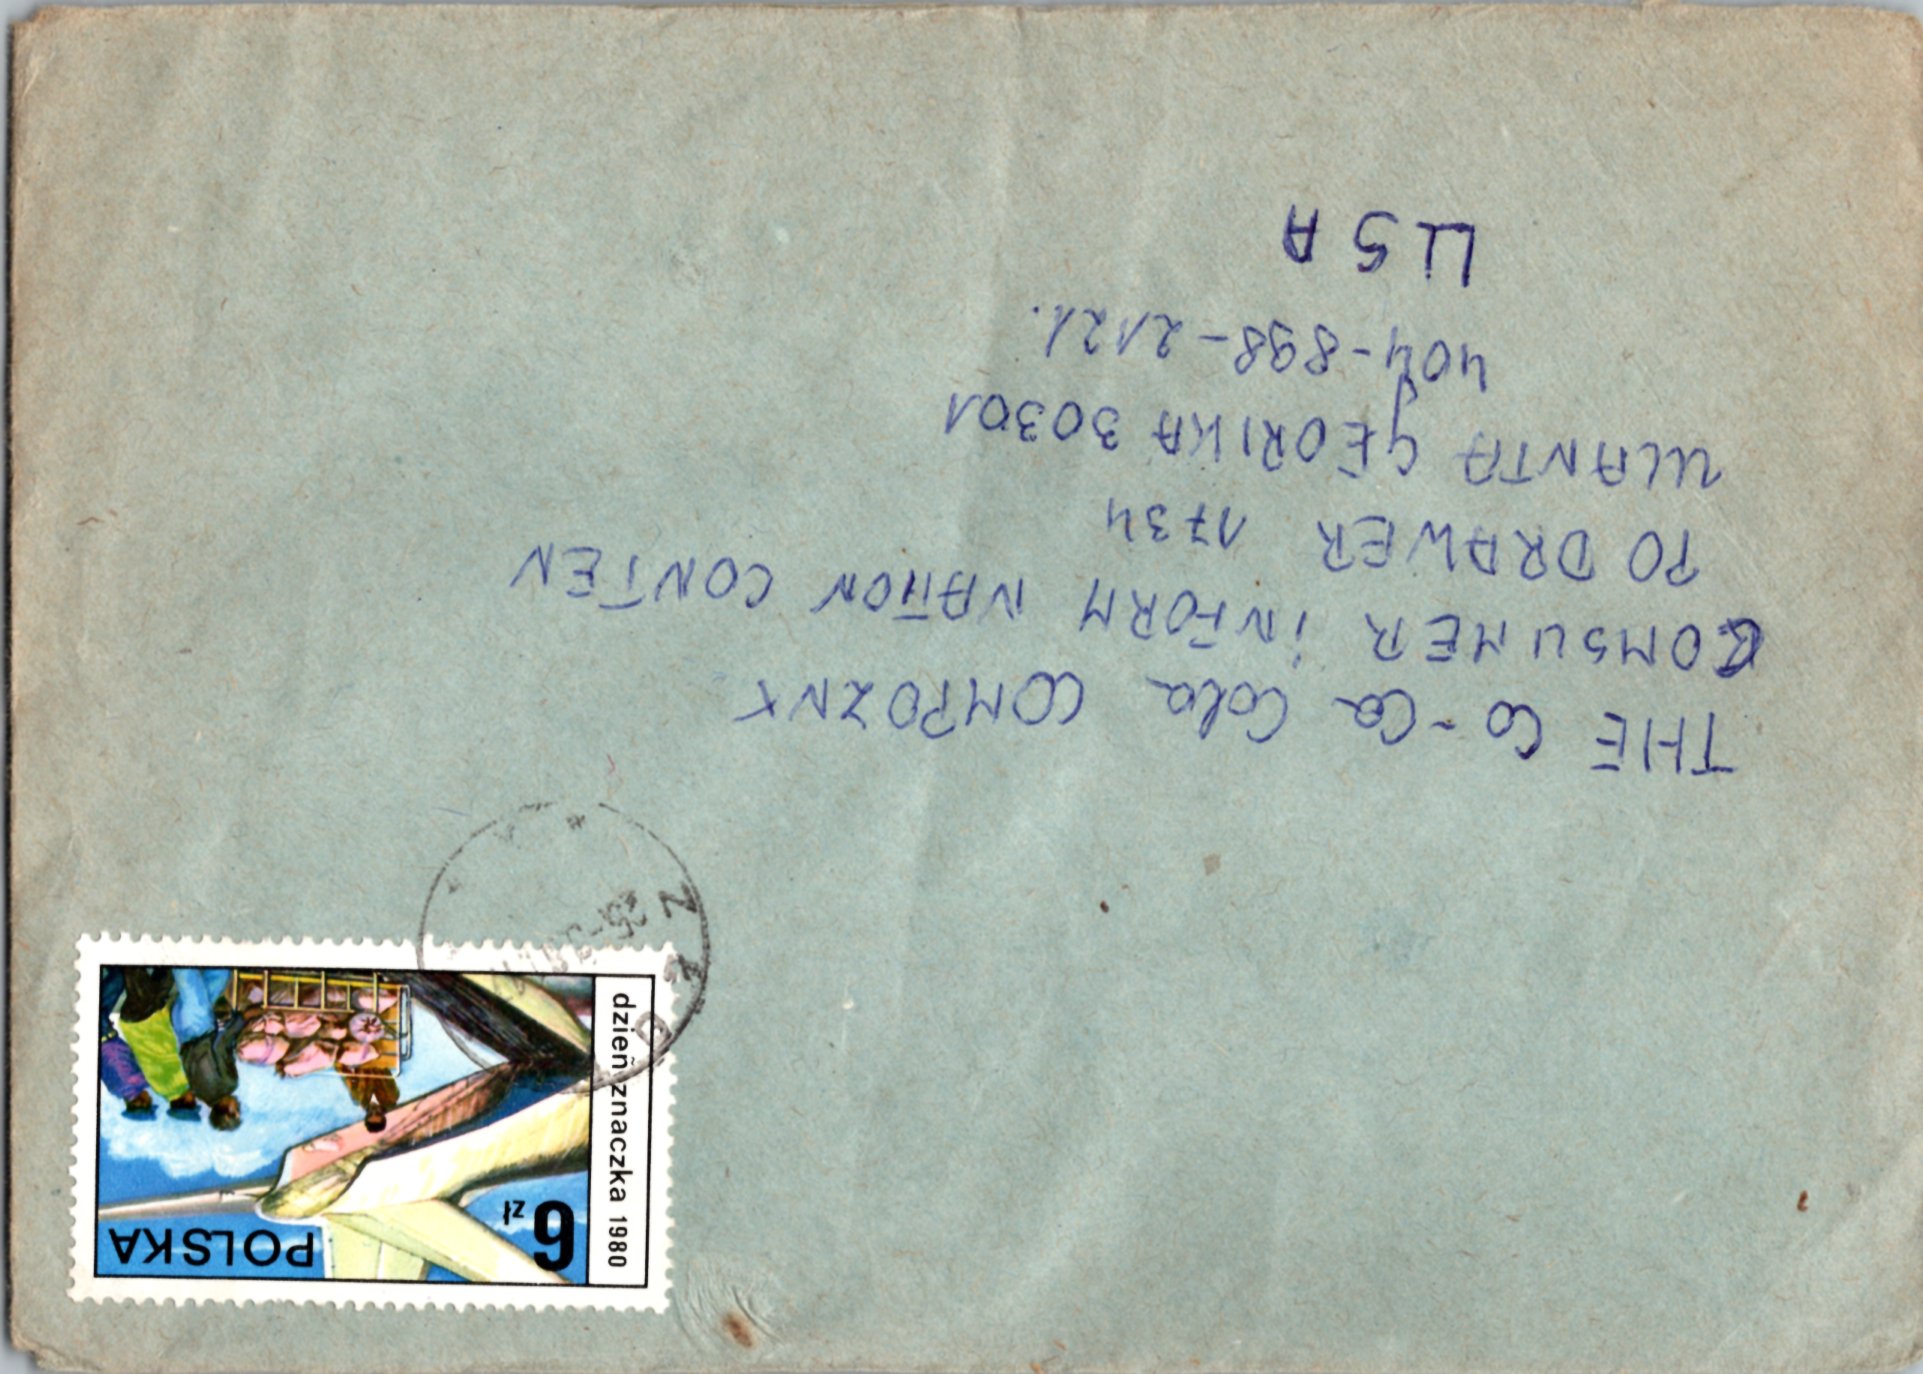 THE Co-Ca Cola COMPOZNY
COMSUMER INFORM NATION CONTEN
PO DRAWER 1734
ULANTA GEORIKA 30301
404-898-2121.
USA
dzień znaczka 1980
6 zł
POLSKA